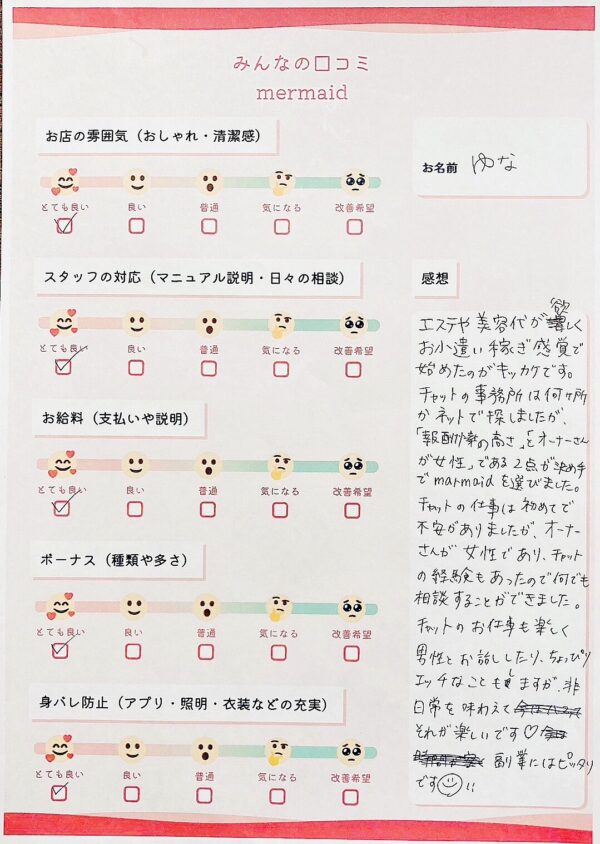 みんなの口コミ
mermaid
お店の雰囲気（おしゃれ・清潔感）
とても良い 良い 普通 気になる 改善希望
スタッフの対応（マニュアル説明・日々の相談）
とても良い 良い 普通 気になる 改善希望
お給料（支払いや説明）
とても良い 良い 普通 気になる 改善希望
ボーナス（種類や多さ）
とても良い 良い 普通 気になる 改善希望
身バレ防止（アプリ・照明・衣装などの充実）
とても良い 良い 普通 気になる 改善希望
お名前 ゆな
感想
エステや美容代が欲しく
お小遣い稼ぎ感覚で
始めたのがキッカケです。
チャットの事務所は何ヶ所
かネットで探しましたが、
「報酬率の高さ」と「オーナーさん
が女性」である2点が決め手
でmarmaidを選びました。
チャットの仕事は初めてで
不安がありましたが、オーナー
さんが女性であり、チャット
の経験もあったので何でも
相談することができました。
チャットのお仕事も楽しく
男性とお話ししたり、ちょっぴり
エッチなこともしますが、非
日常を味わえて
それが楽しいです♡
副業にはピッタリ
です